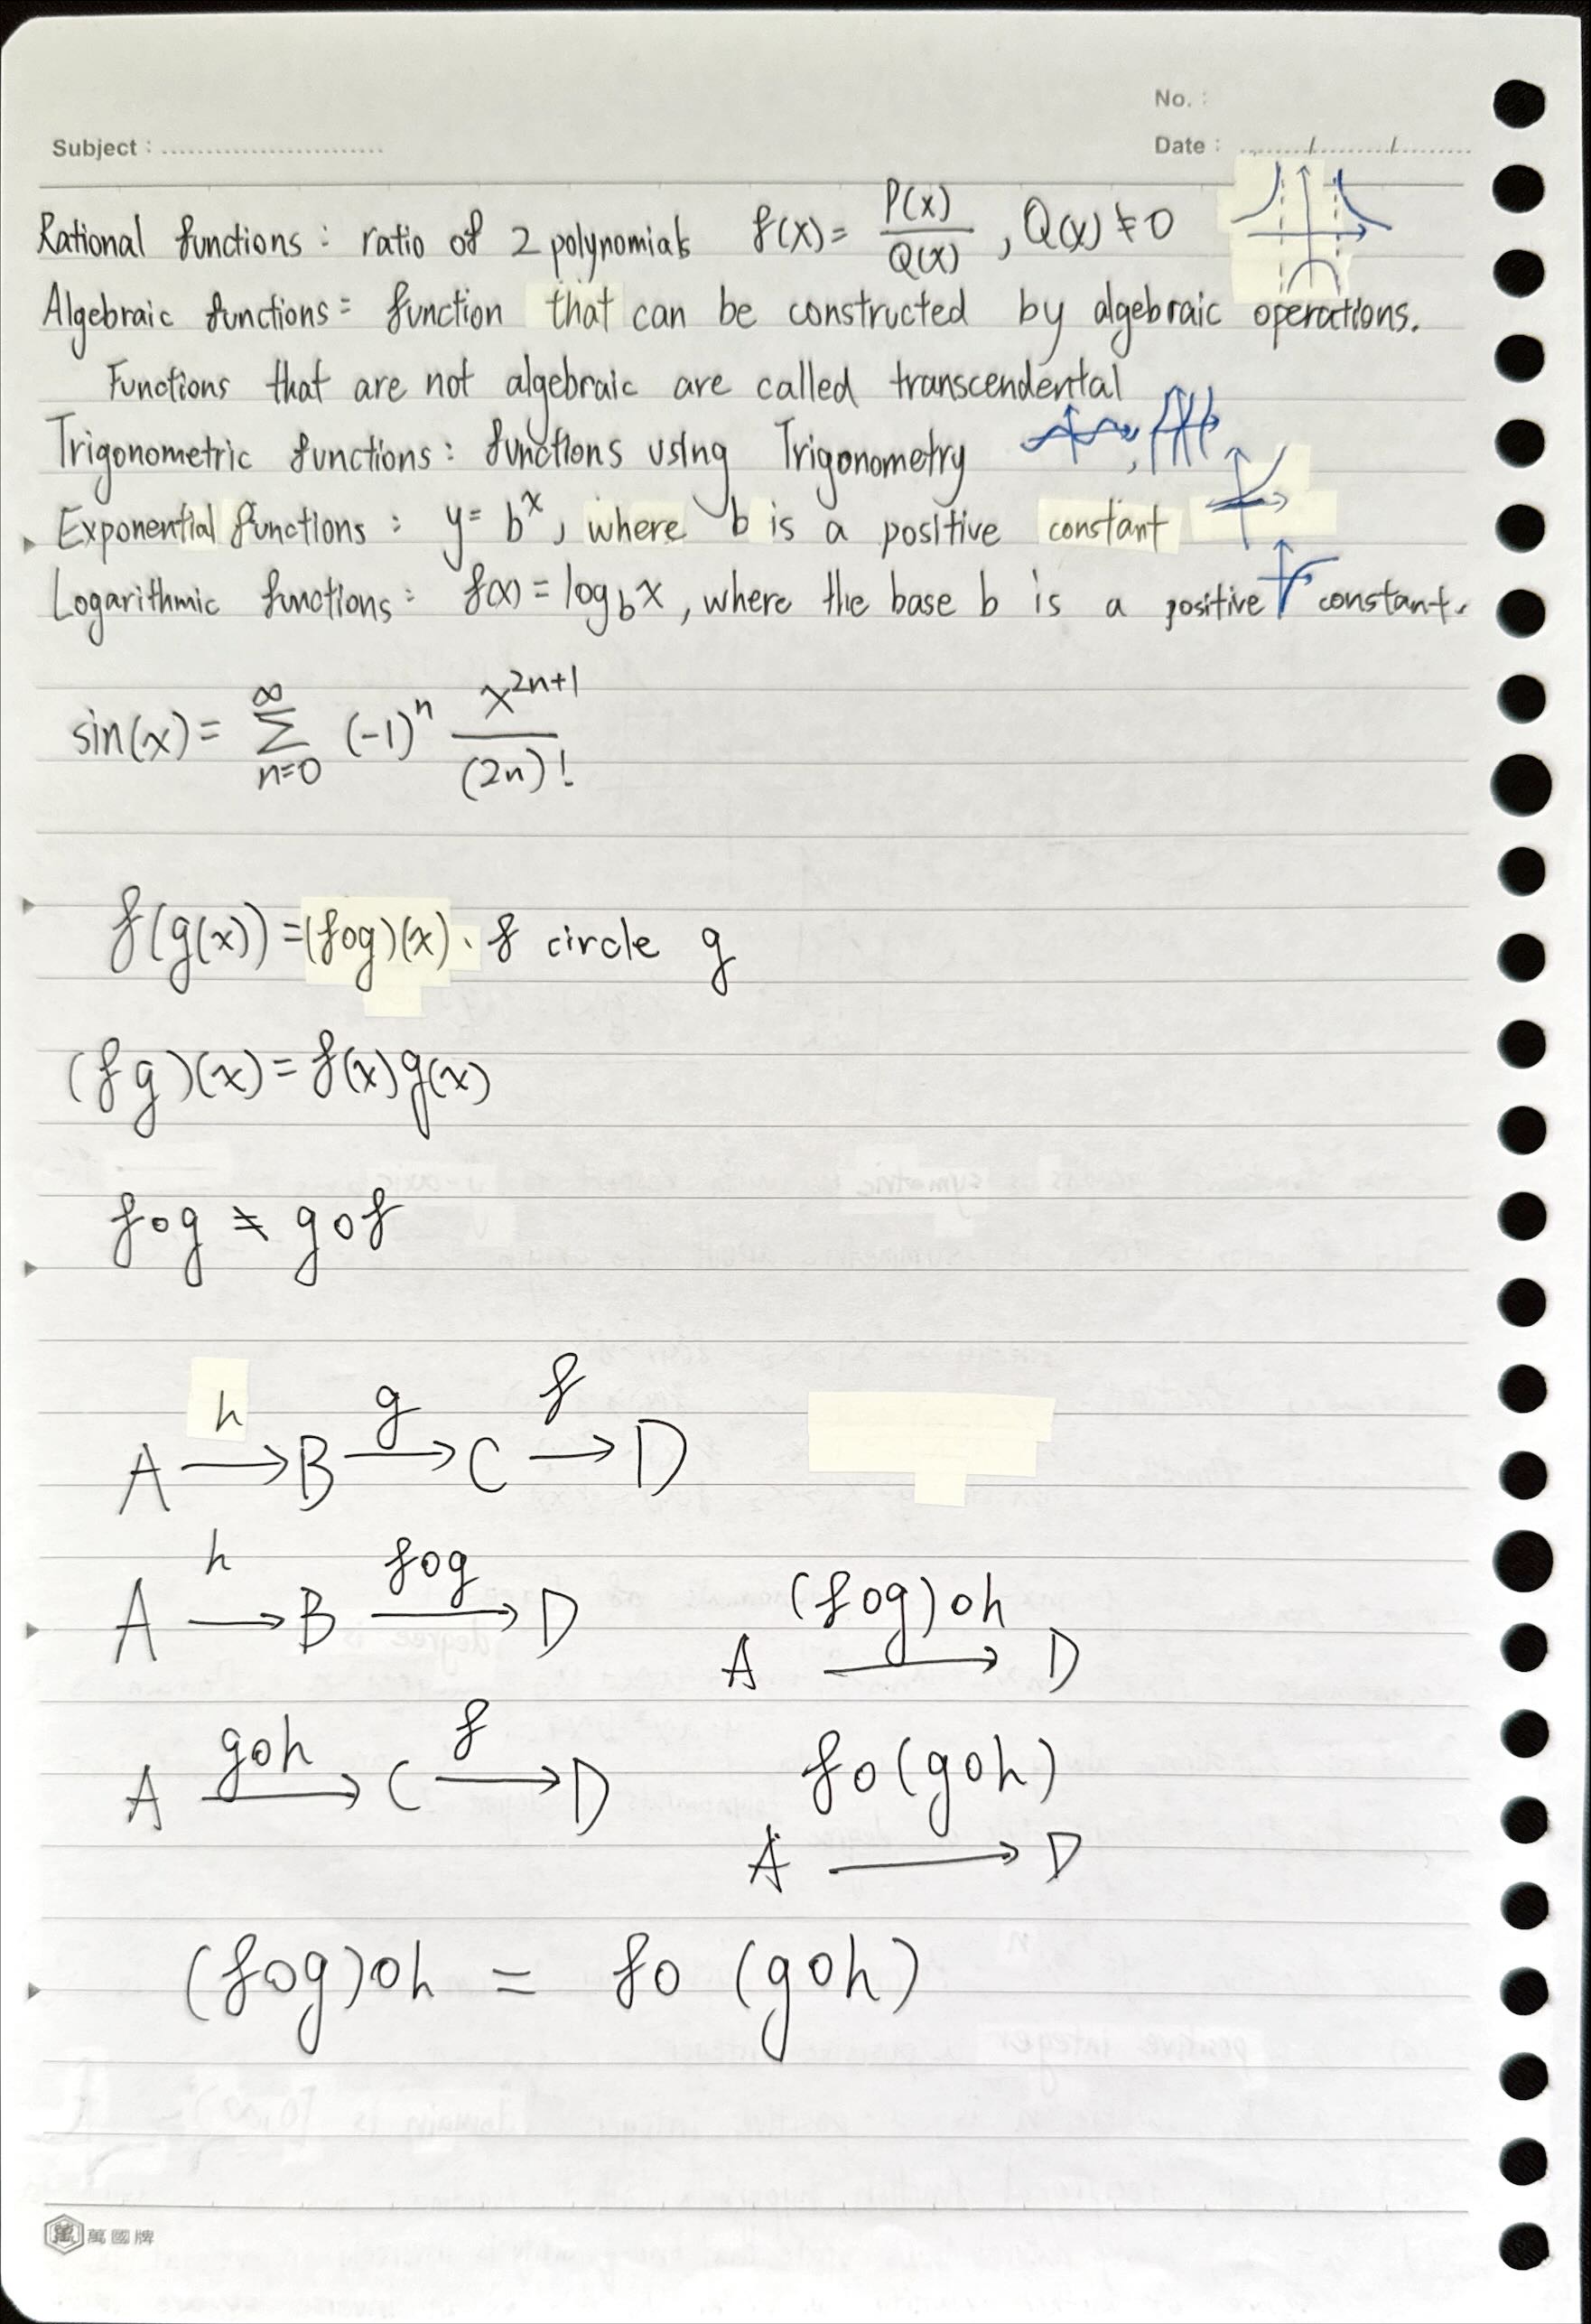 No. :
Subject : ........................
Date : ......../........./.........
Rational functions : ratio of 2 polynomials f(x) = P(x)/Q(x) , Q(x) ≠ 0
Algebraic functions = function that can be constructed by algebraic operations.
Functions that are not algebraic are called transcendental
Trigonometric functions : functions using Trigonometry
Exponential functions : y = b^x, where b is a positive constant
Logarithmic functions : f(x) = log_b x , where the base b is a positive constant.
sin(x) = ∑_{n=0}^{∞} (-1)^n x^{2n+1}/(2n)!
f(g(x)) = (f∘g)(x) 、 f circle g
(fg)(x) = f(x)g(x)
f∘g ≠ g∘f
h g f
A → B → C → D
h f∘g
A → B → D
(f∘g)∘h
A → D
g∘h f
A → C → D
f∘(g∘h)
A → D
(f∘g)∘h = f∘(g∘h)
萬國牌